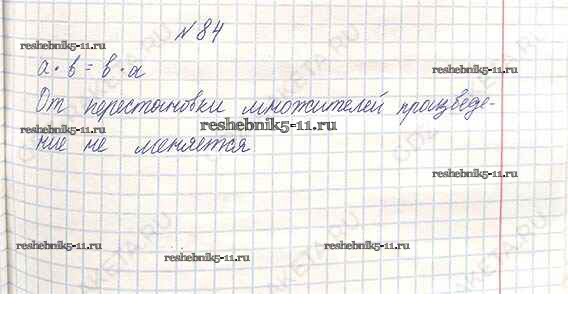 № 84
reshebnik5-11.ru
a · b = b · a
reshebnik5-11.ru
От перестановки множителей произведе-
reshebnik5-11.ru
reshebnik5-11.ru
ние не меняется
reshebnik5-11.ru
reshebnik5-11.ru
reshebnik5-11.ru
reshebnik5-11.ru